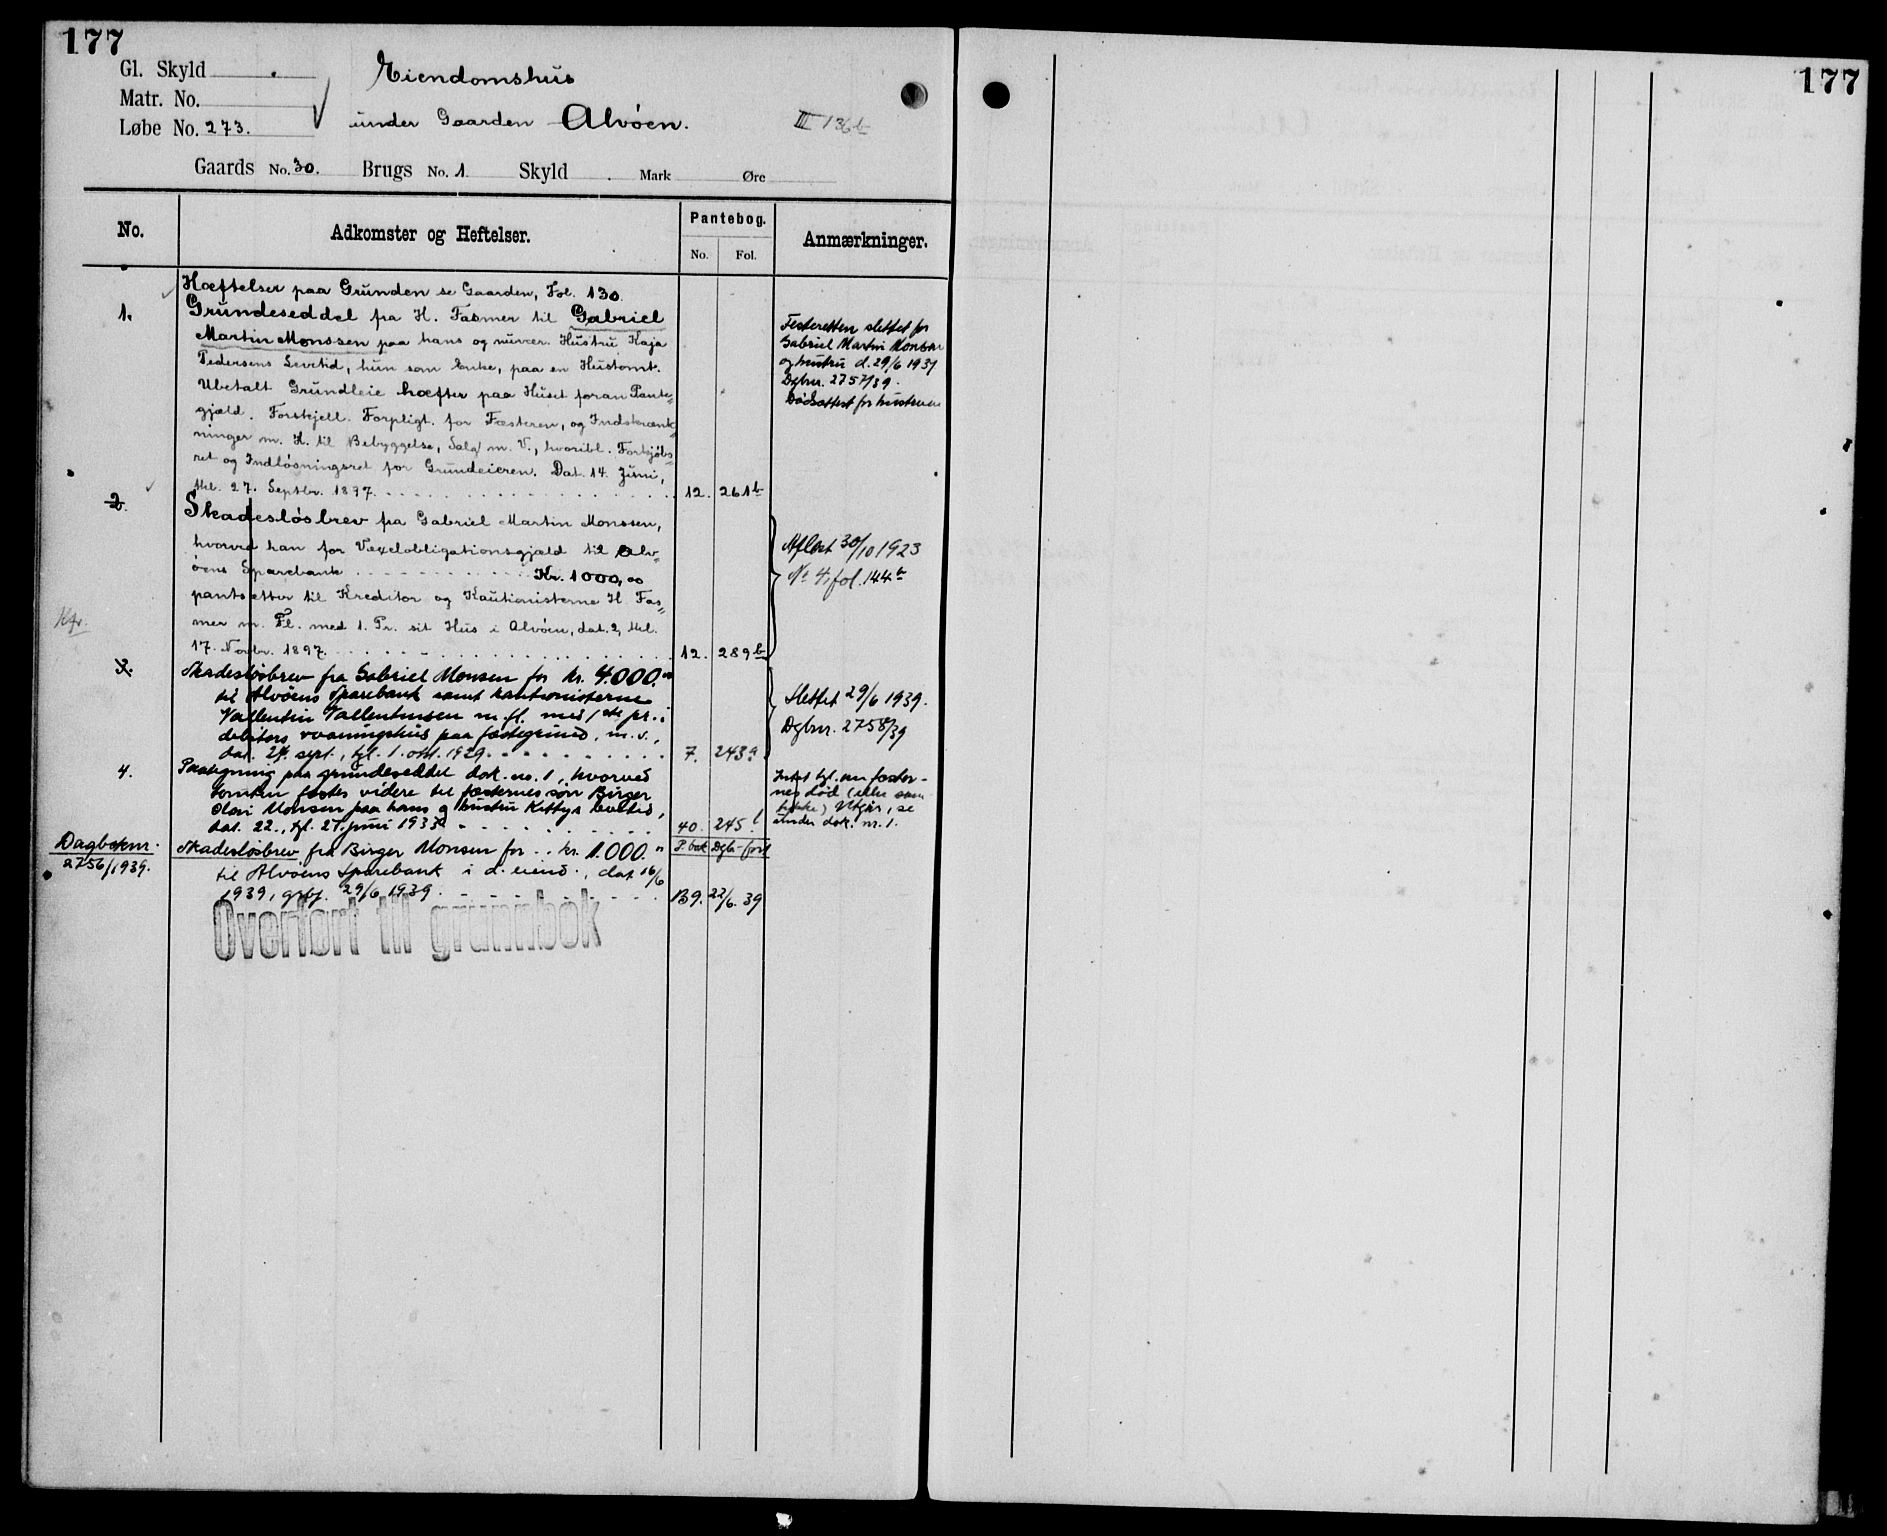 177
177
Gl. Skyld
Matr. No.
Løbe No. 273.
Eiendomshus
under Gaarden Alvöen.
III 136b
Gaards No. 30. Brugs No. 1 Skyld . Mark Øre
No. Adkomster og Heftelser. Pantebog. No. Fol. Anmærkninger.
Hæftelser paa Grunden se Gaarden, Fol. 130.
1. Grundeseddel fra H. Fasmer til Gabriel
Martin Monssen paa hans og nuvær. Hustru Kaja
Pedersens Levetid, hun som Enke, paa en Hustomt.
Ubetalt Grundleie hæfter paa Huset foran Pante-
gjæld. Forskjell. Forpligt. for Fæsteren, og Indskrænk-
ninger m. H. til Bebyggelse, Salg m. V., hvoribl. Forkjøbs-
ret og Indløsningsret for Grundeieren. Dat. 14. Juni,
thl. 27. Septbr. 1897. 12. 261b
Festeretten slettet for
Gabriel Martin Monsen
og hustru d. 29/6 1939
Dgbnr. 2757/39.
Dødsattest for hustruen
2. Skadesløsbrev fra Gabriel Martin Monssen,
hvorved han for Vexelobligationsgjæld til Alv-
öens Sparebank Kr. 1000,00
pantsætter til Kreditor og Kautionisterne H. Fas-
mer m. Fl. med 1. Pr. sit Hus i Alvöen, dat. 2, thl.
17. Novbr. 1897. 12. 289b
Aflæst 30/10 1923
No 4, fol. 144b
Kfr.
3. Skadesløsbrev fra Gabriel Monsen for kr. 4.000.00
til Alvöens Sparebank samt kautionisterne
Vallentin Vallentinsen m. fl. med 1ste pr. i
debitors vaaningshus paa fæstegrund, m. v.,
dat. 24. sept., tgl. 1. okt. 1929. 7. 243a
Slettet 29/6 1939.
Dgbnr. 2758/39
4. Paategning paa grundeseddel dok. no. 1, hvorved
tomten festes videre til fæsternes søn Birger
Olai Monsen paa hans og hustru Kittys levetid,
dat. 22., tgl. 27. juni 1933 40. 245b
Intet tgl. om fæster-
nes død (ikke sam-
tykke) Utgår, se
under dok. nr. 1.
Dagboknr. 2756/1939.
P. bok Dgb-ført
Skadesløsbrev fra Birger Monsen for kr. 1.000.00
til Alvöens Sparebank i d. eiend., dat. 16/6
1939, grbf. 29/6 1939 B9. 22/6. 39
Overført til grunnbok